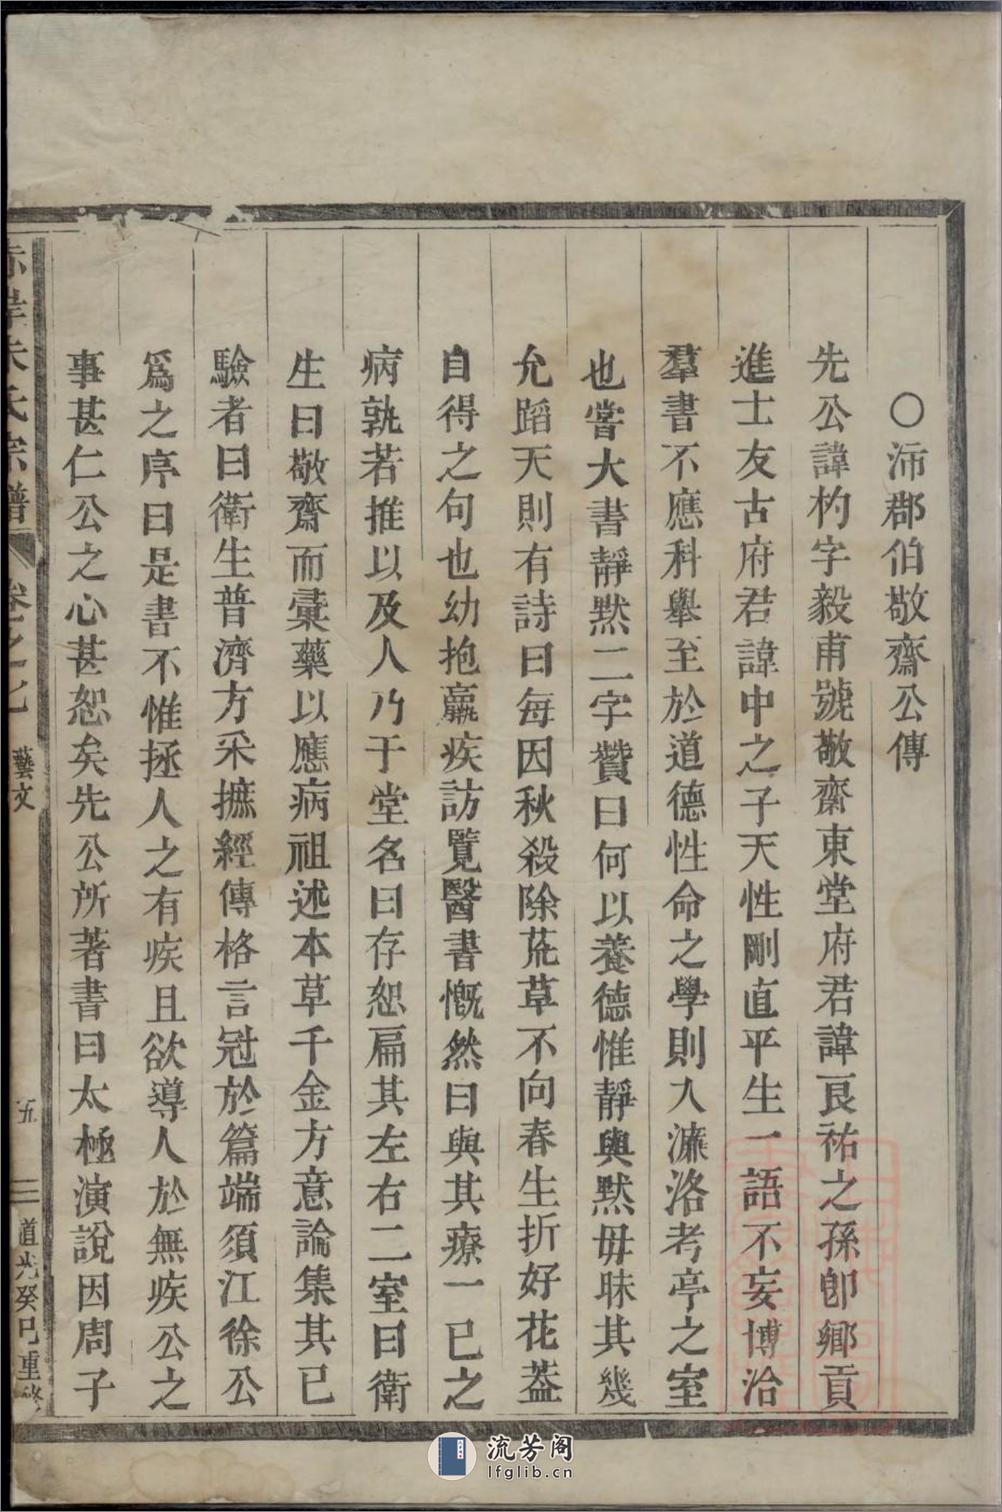 ○沛郡伯敬齋公傳
先公諱杓字毅甫號敬齋東堂府君諱良祐之孫卽鄉貢
進士友古府君諱中之子天性剛直平生一語不妄博洽
羣書不應科舉至於道德性命之學則入濂洛考亭之室
也嘗大書靜默二字贊曰何以養德惟靜與默毋昧其幾
允蹈天則有詩曰每因秋殺除荒草不向春生折好花葢
自得之句也幼抱羸疾訪覽醫書慨然曰與其療一已之
病孰若推以及人乃于堂名曰存恕扁其左右二室曰衛
生曰敬齋而彙藥以應病祖述本草千金方意論集其已
驗者曰衛生普濟方采摭經傳格言冠於篇端須江徐公
爲之序曰是書不惟拯人之有疾且欲導人於無疾公之
事甚仁公之心甚恕矣先公所著書曰太極演說因周子
赤岸朱氏宗譜 卷之七 藝文 五 道光癸巳重修
流芳阁
lfglib.cn